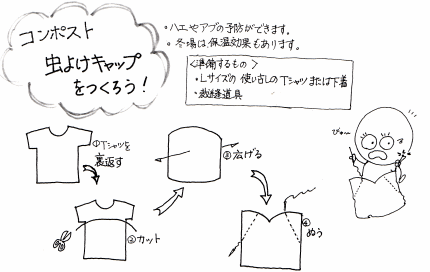 コンポスト
虫よけキャップ
をつくろう!
・ハエやアブの予防ができます。
・冬場は、保温効果もあります。
<準備するもの>
・Lサイズの 使い古しのTシャツまたは下着
・裁縫道具
①Tシャツを
裏返す
②カット
③広げる
④
ぬう
びゅ〜